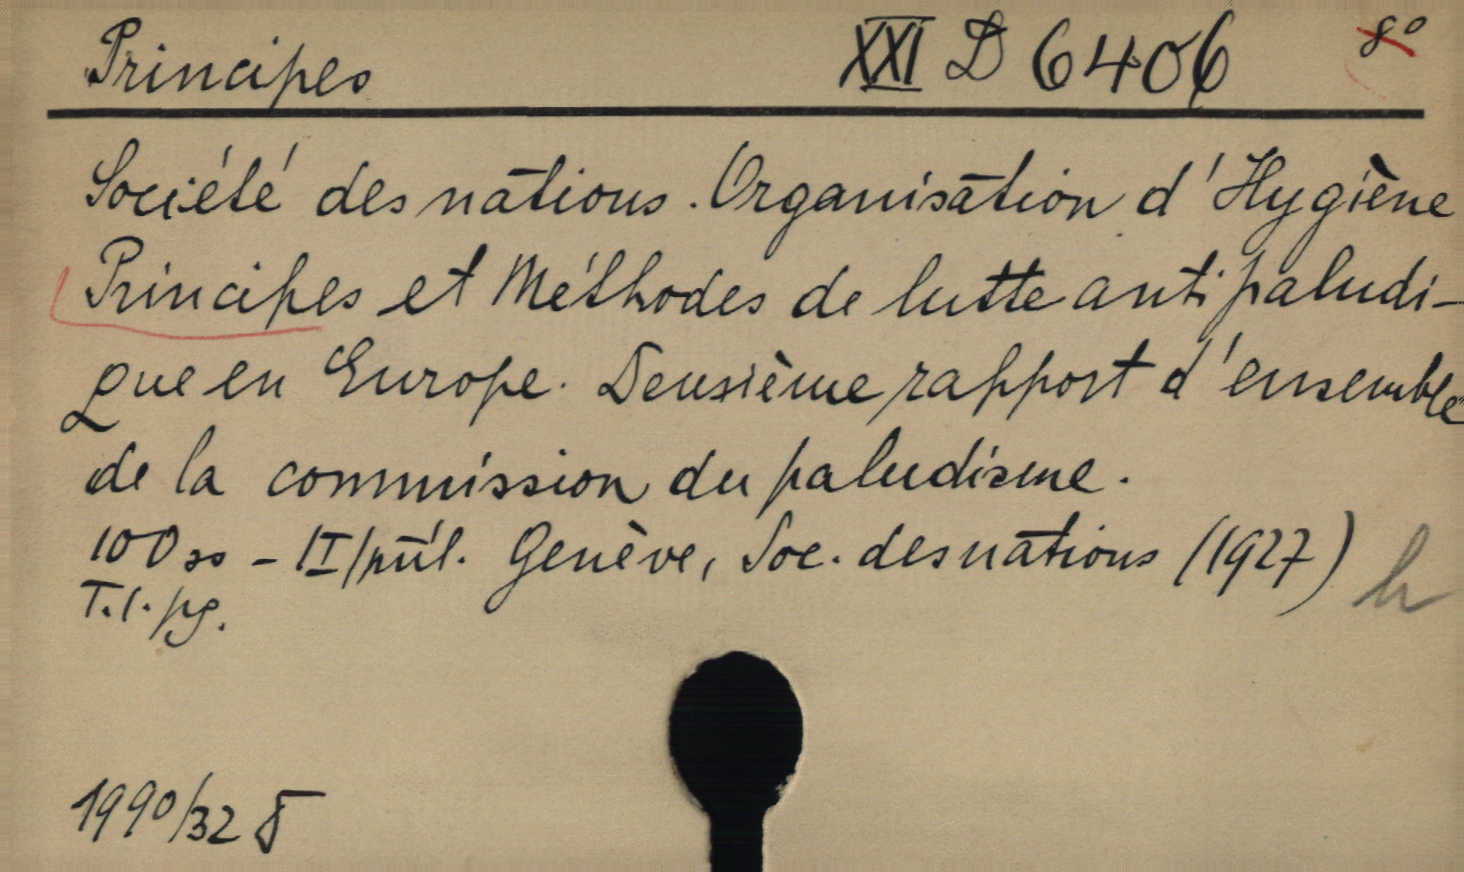 Principes XXI D 6406 8°
Société des nations. Organisation d'Hygiène
Principes et Méthodes de lutte antipaludi-
que en Europe. Deusième rapport d'ensemble
de la commission du paludisme.
100 ss - II/ Genève, Soc. des nations (1927) h
T.l. pg.
1990/32